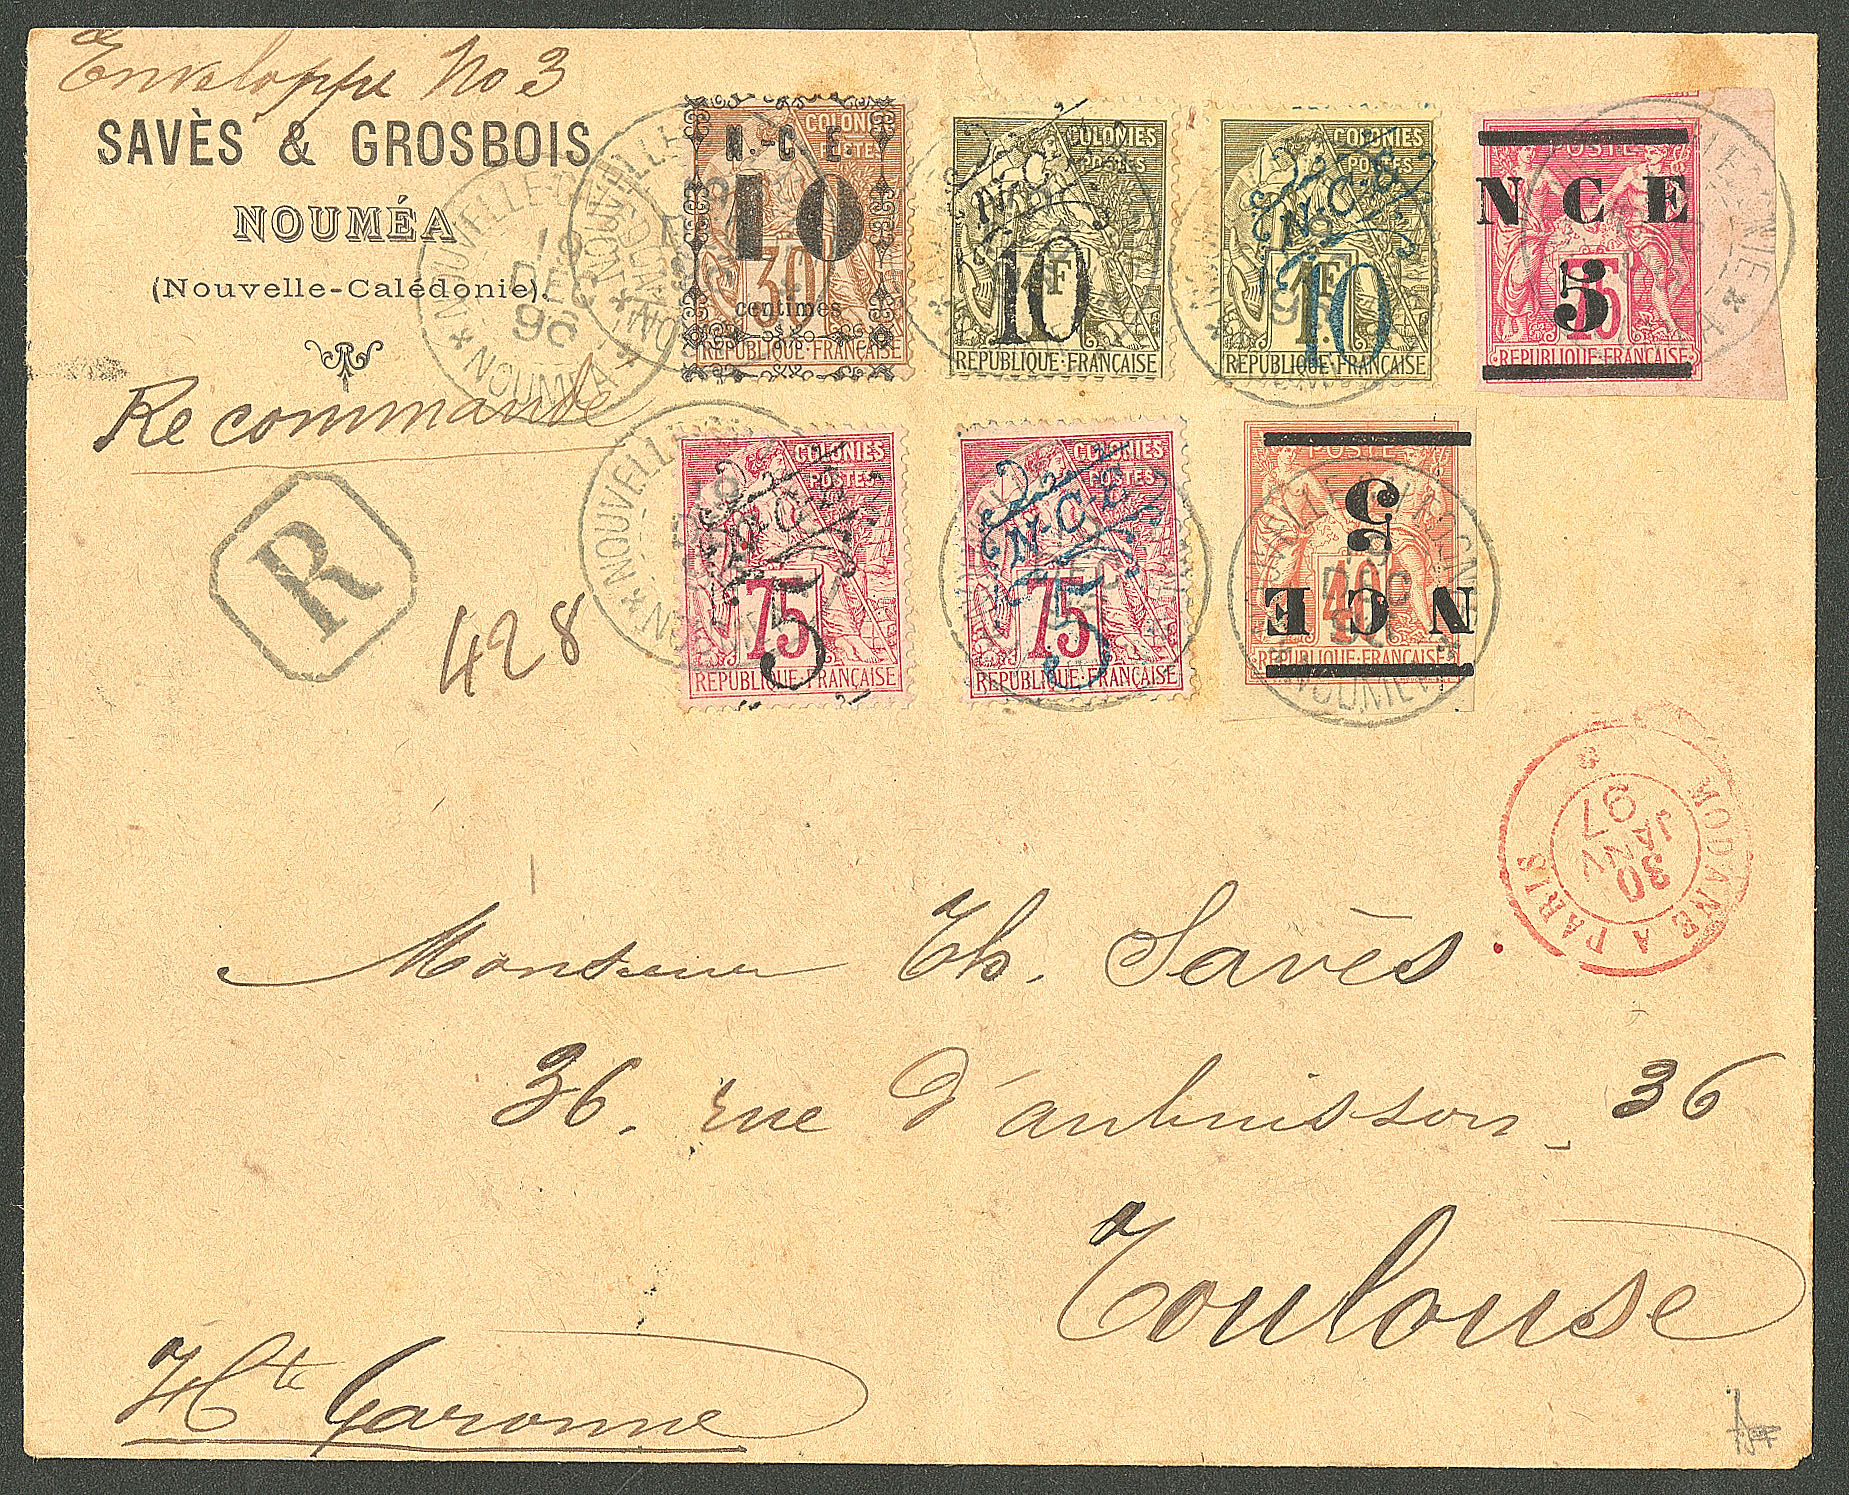 Enveloppe No 3
SAVÈS & GROSBOIS
NOUMÉA
(Nouvelle-Calédonie).
Recommandé
R
428
N.-C.E
COLONIES
POSTES
10
30
centimes
REPUBLIQUE·FRANÇAISE
COLONIES
POSTES
N.C.E
10
1F
REPUBLIQUE·FRANÇAISE
COLONIES
POSTES
N.C.E
10
1F
REPUBLIQUE·FRANÇAISE
POSTE
N C E
5
75
REPUBLIQUE·FRANÇAISE
COLONIES
POSTES
N.C.E
75
5
REPUBLIQUE·FRANÇAISE
COLONIES
POSTES
N.C.E
75
5
REPUBLIQUE·FRANÇAISE
POSTE
5
40
N C E
REPUBLIQUE·FRANÇAISE
NOUVELLE-CALEDONIE
19
DEC
96
NOUMEA
MODANE A PARIS
30
JANV
97
Monsieur Th. Savès
36. rue d'aubuisson _ 36
Toulouse
Hte Garonne